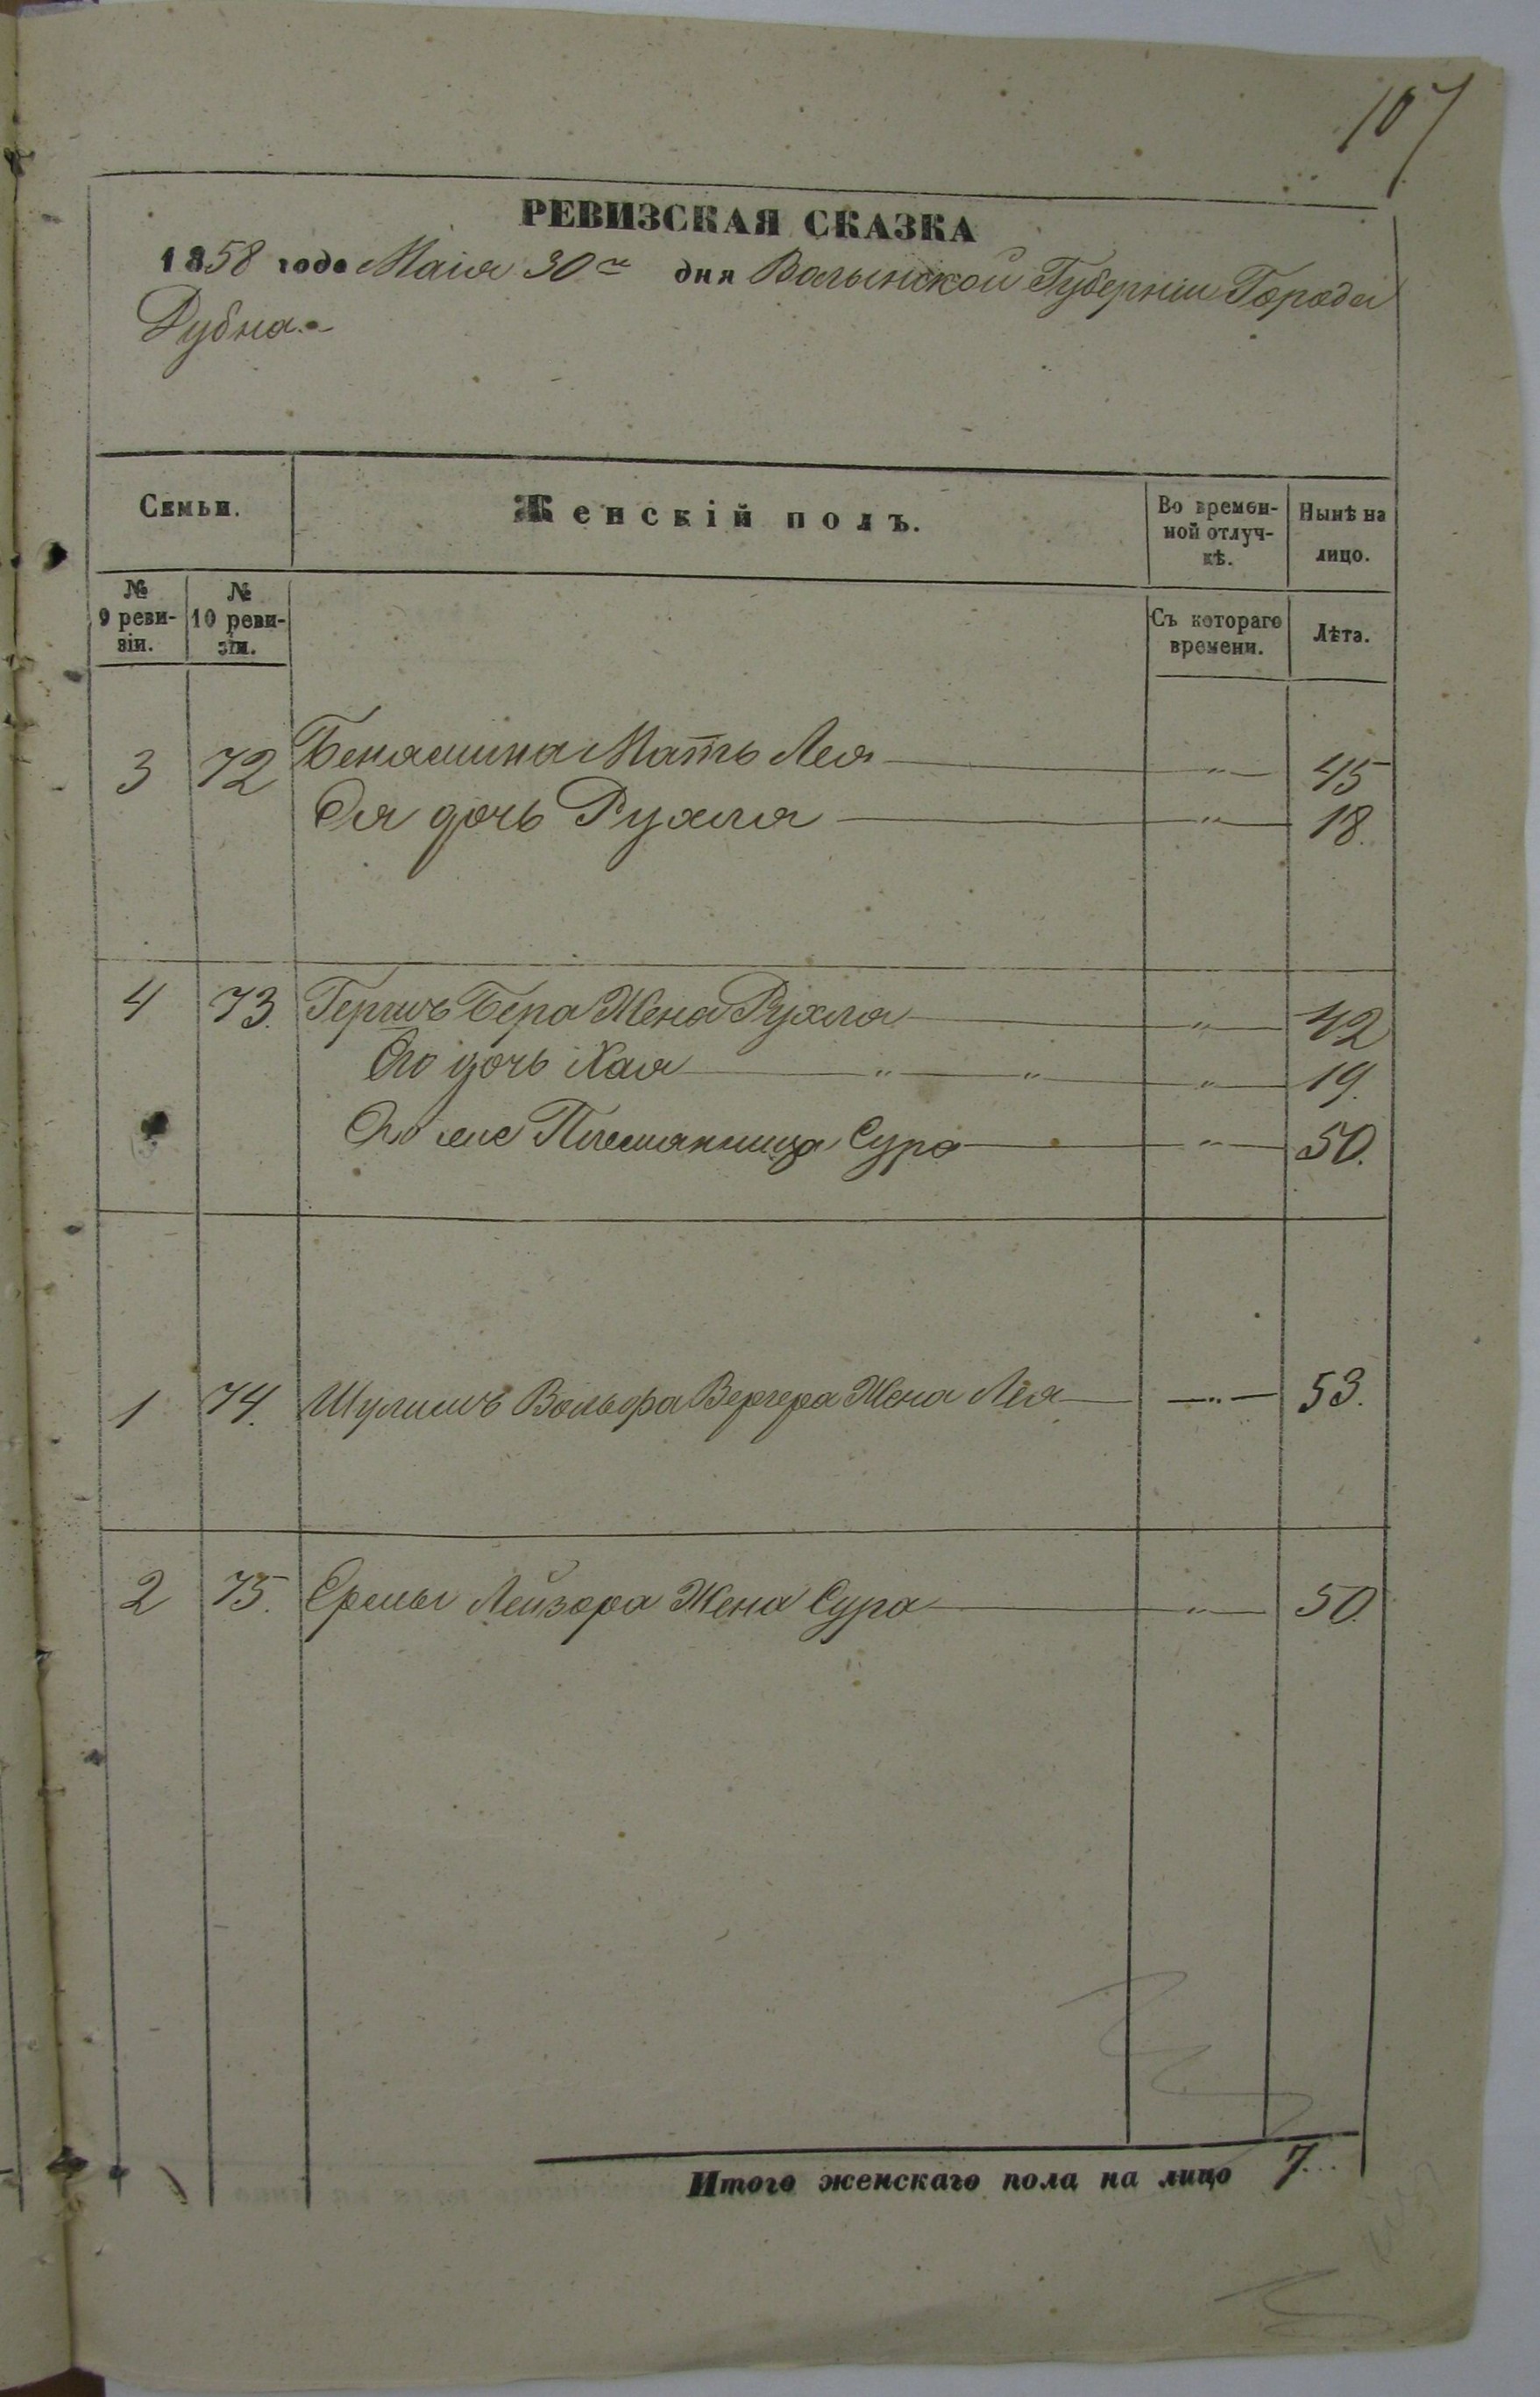 107
РЕВИЗСКАЯ СКАЗКА
1858 года Маія 30го дня Волынской Губерніи Города
Дубна
Семьи.
Женскій полъ.
Во времен-
ной отлуч-
кѣ.
Нынѣ на
лицо.
№
9 реви-
зіи.
№
10 реви-
зіи.
Съ котораго
времени.
Лѣта.
3 72 Беняминa Мать Лея — " — 45
Ея дочь Рухля — " — 18.
4 73. Гершъ Бера Жена Рухля — " — 42
Его дочь Хая — " — " — " — 19.
Его же Племянница Сура — " — 50.
1 74. Шулимъ Вольфа Вергера Жена Лея — " — 53.
2 75. Ермы Лейзора Жена Сура — " — 50.
Итого женскаго пола на лицо 7.